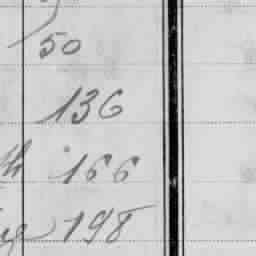 50
136
th 166
198